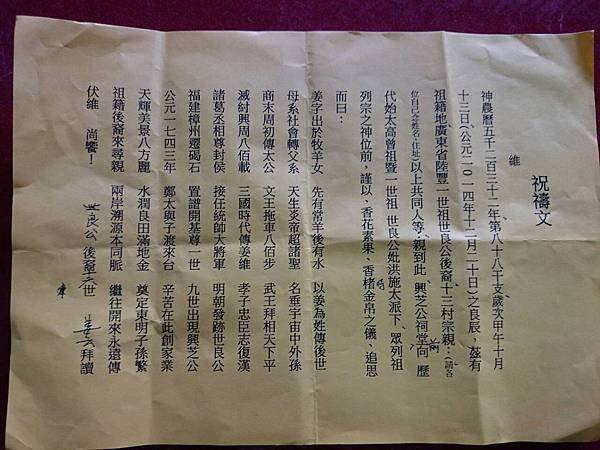 祝禱文
維
神農曆五千二百三十二年、第八十八干支、歲次甲午十月
十三日、(公元二〇一四年十二月二十日)之良辰，茲有
祖籍地、廣東省陸豐一世祖世良公後裔、十三村宗親：(請各
位自己念姓名、住址)以上共同人等：親到此、興芝公祠堂向前歷
代始太高曾祖暨一世祖、世良公妣洪施太派下、眾列祖
列宗之神位前，謹以、香花素果、香楮金帛之儀、追思
而曰：
姜字出於牧羊女 先有常羊後有水 以姜為姓傳後世
母系社會轉父系 天生炎帝超諸聖 名垂宇宙中外孫
商末周初傳太公 文王拖車八佰步 武王拜相天下平
滅紂興周八佰載 三國時代傳姜維 孝子忠臣志復漢
諸葛丞相尊封侯 接任統帥大將軍 明朝發跡世良公
福建樟州遷碣石 置譜開基尊一世 九世出現興芝公
公元一七四三年 鄭太與子渡來台 辛苦在此創家業
天輝美景八方麗 水潤良田滿地金 奠定東明子孫繁
祖籍後裔來尋親 兩岸溯源本同脈 繼往開來永遠傳
伏維 尚饗！ 世良公後裔 世 姜 拜讀